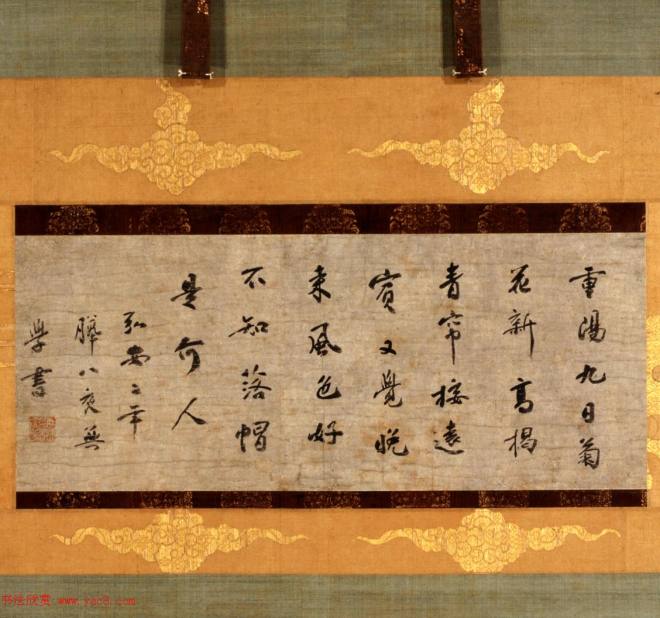 重陽九日菊
花新高揭
青帘接遠
賓又覺晚
来風色好
不知落帽
是何人
弘安二年
臘八夜無
學書
书法欣赏 www.yac8.com